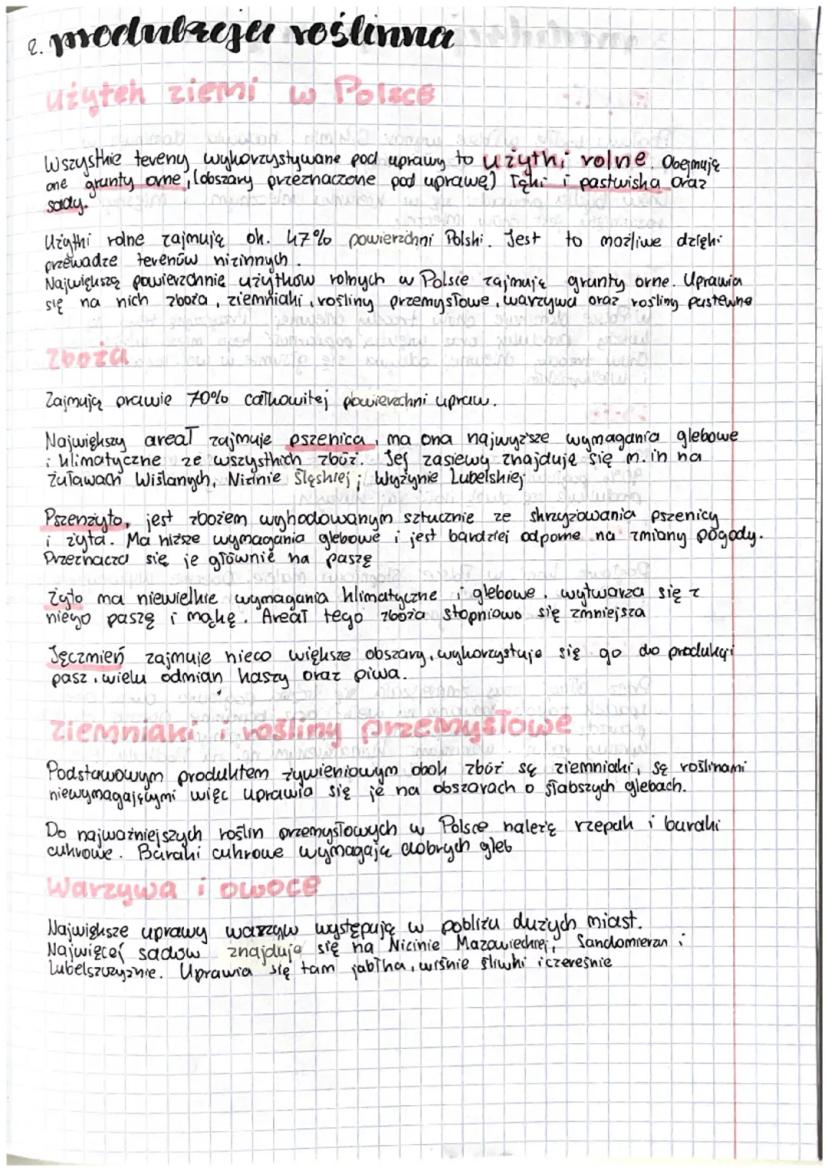 2. produkcja roślinna
Użytek ziemi w Polsce
Wszystkie tereny wykorzystywane pod uprawy to użytki rolne. Obejmują
one grunty orne, (obszary przeznaczone pod uprawę) łąki i pastwiska oraz
sady.
Użytki rolne zajmują ok. 47% powierzchni Polski. Jest to możliwe dzięki
przewadze terenów nizinnych.
Największą powierzchnię użytków rolnych w Polsce zajmują grunty orne. Uprawia
się na nich zboża, ziemniaki, rośliny przemysłowe, warzywa oraz rośliny pastewne
Zboża
Zajmują prawie 70% całkowitej powierzchni upraw.
Największy areał zajmuje pszenica, ma ona najwyższe wymagania glebowe
i klimatyczne ze wszystkich zbóż. Jej zasiewy znajdują się m.in na
Żuławach Wiślanych, Nizinie Śląskiej i Wyżynie Lubelskiej
Pszenżyto, jest zbożem wyhodowanym sztucznie ze skrzyżowania pszenicy
i żyta. Ma niższe wymagania glebowe i jest bardziej odporne na zmiany pogody.
Przeznacza się je głównie na paszę
Żyto ma niewielkie wymagania klimatyczne i glebowe. wytwarza się z
niego paszę i mąkę. Areał tego zboża stopniowo się zmniejsza
Jęczmień zajmuje nieco większe obszary, wykorzystuje się go do produkcji
pasz, wielu odmian kaszy oraz piwa.
Ziemniaki i rośliny przemysłowe
Podstawowym produktem żywieniowym obok zbóż są ziemniaki, są roślinami
niewymagającymi więc uprawia się je na obszarach o słabszych glebach.
Do najważniejszych roślin przemysłowych w Polsce należą rzepak i buraki
cukrowe. Buraki cukrowe wymagają dobrych gleb
Warzywa i owoce
Największe uprawy warzyw występują w pobliżu dużych miast.
Najwięcej sadów znajduje się na Nizinie Mazowieckiej,
Lubelszczyźnie. Uprawia się tam jabłka, wiśnie śliwki i czereśnie